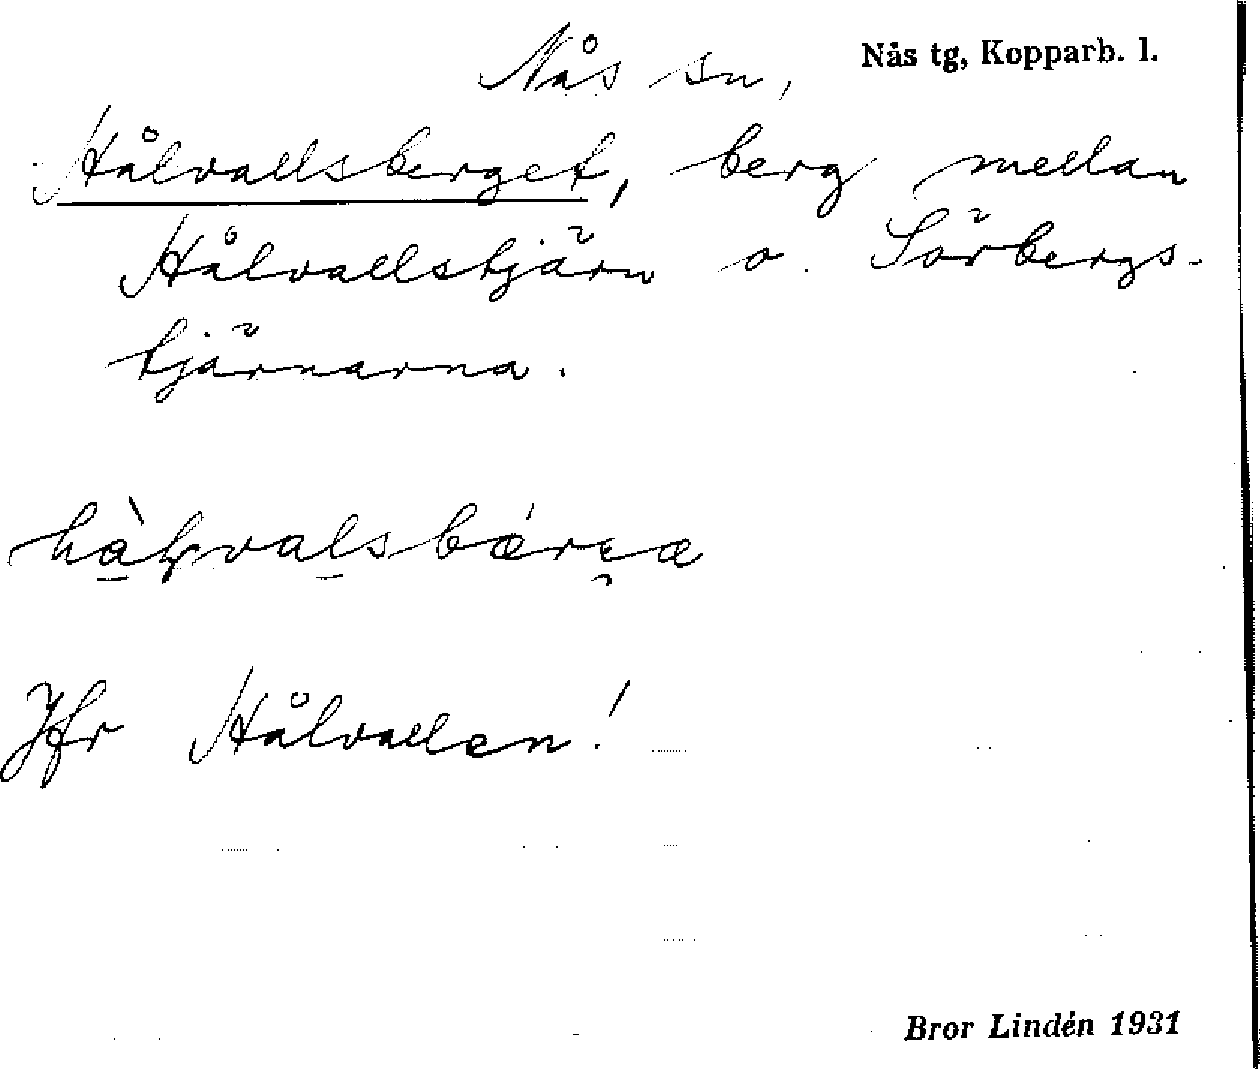 Nås sn, Nås tg, Kopparb. l.
Hålvallsberget, berg mellan
Hålvallstjärn o. Sörbergs-
tjärnarna.
Jfr Hålvallen!
Bror Lindén 1931